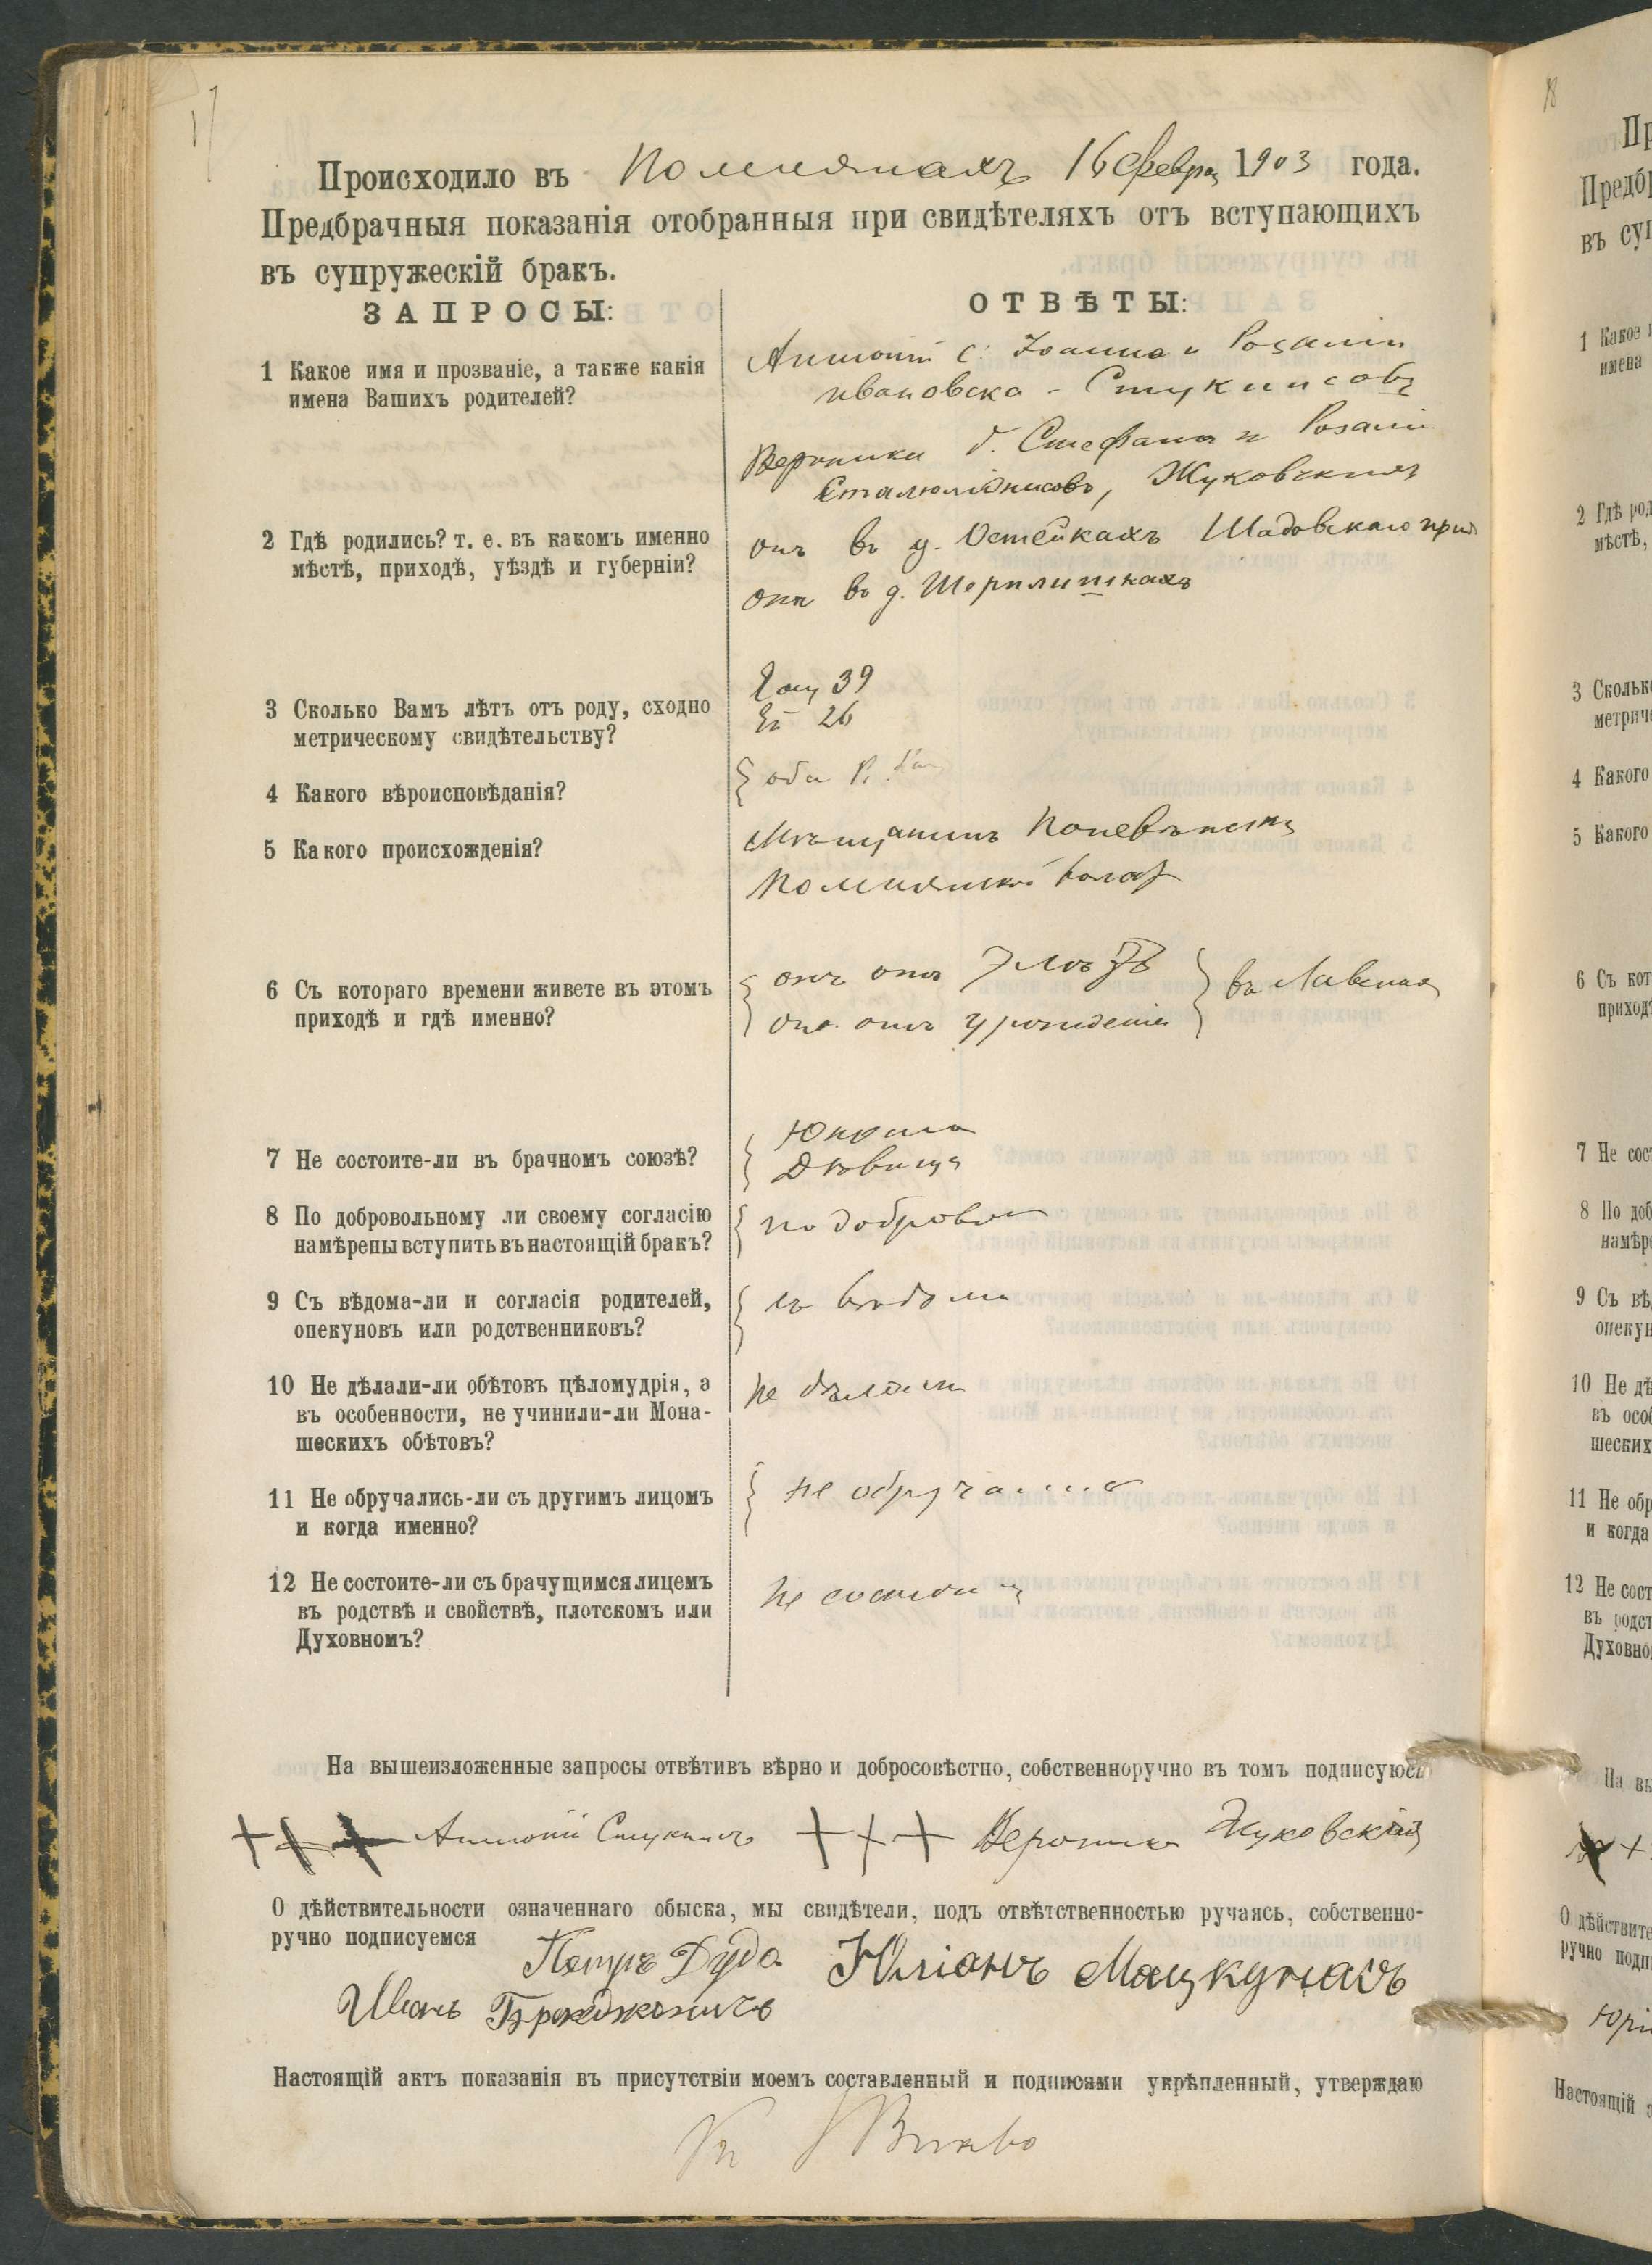 17
Происходило въ Помнянахъ 16 февра 1903 года.
Предбрачныя показанія отобранныя при свидѣтеляхъ отъ вступающихъ
въ супружескій бракъ.
ЗАПРОСЫ:
ОТВѢТЫ:
1 Какое имя и прозваніе, а также какія
имена Вашихъ родителей?
Антоній с. Іоанна и Розаліи
Ивановска - Стукинсовъ
Вероника д. Стефана и Розаліи
Жуковскихъ
2 Гдѣ родились? т. е. въ какомъ именно
мѣстѣ, приходѣ, уѣздѣ и губерніи?
онъ въ д. Остейкахъ Шадовскаго прих
она въ д. Шерплишкахъ
3 Сколько Вамъ лѣтъ отъ роду, сходно
метрическому свидѣтельству?
39
Ей 26
4 Какого вѣроисповѣданія?
оба Р. Кат
5 Какого происхожденія?
Мѣщанинъ Поневѣжскій
Помнянской волос
6 Съ котораго времени живете въ этомъ
приходѣ и гдѣ именно?
онъ отъ
она отъ урожденія
въ
7 Не состоите-ли въ брачномъ союзѣ?
Юноша
Дѣвица
8 По добровольному ли своему согласію
намѣрены вступить въ настоящій бракъ?
по добровол
9 Съ вѣдома-ли и согласія родителей,
опекуновъ или родственниковъ?
съ вѣдома
10 Не дѣлали-ли обѣтовъ цѣломудрія, а
въ особенности, не учинили-ли Мона-
шескихъ обѣтовъ?
Не дѣлали
11 Не обручались-ли съ другимъ лицомъ
и когда именно?
не обручались
12 Не состоите-ли съ брачущимся лицемъ
въ родствѣ и свойствѣ, плотскомъ или
Духовномъ?
Не состоимъ
На вышеизложенные запросы отвѣтивъ вѣрно и добросовѣстно, собственноручно въ томъ подписуюсь
+ + + Антоній Стукинсъ + + + Вероника Жуковскія
О дѣйствительности означеннаго обыска, мы свидѣтели, подъ отвѣтственностью ручаясь, собственно-
ручно подписуемся
Петръ Дуда Юліанъ Мацкунасъ
Иванъ
Настоящій актъ показанія въ присутствіи моемъ составленный и подписями укрѣпленный, утверждаю